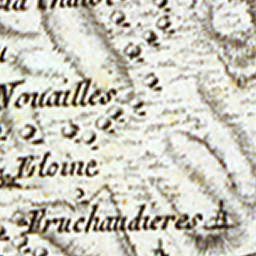 Nouailles
Eloine
Fruchaudieres